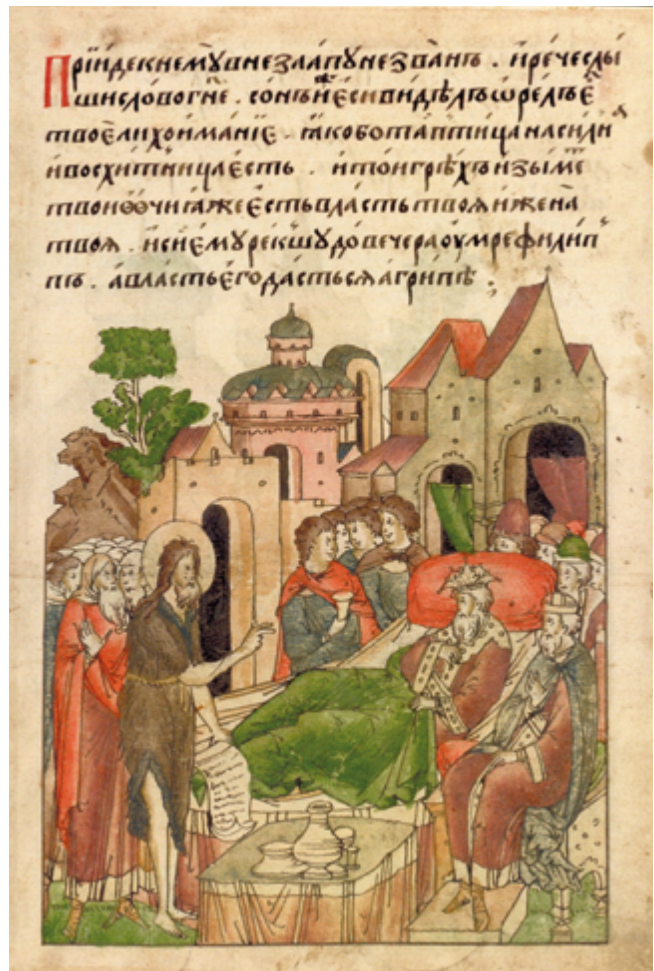 Прїидекнемꙋвнезапꙋнезванъ . ирече слы
шисловогн҃е . сонъи҆жеесивидѣлъѡрелъе҆с
твоели́хоиманїе . ꙗкоботаптицанасилн
ивосхитницаесть . итойгрѣхъизымет
твоиѻчиꙗжеестьвластьтвоѧиженà
твоѧ . исиемꙋрекшꙋдовечераоумрефилип
пъ . авластьегодастьсѧагрипѣ .